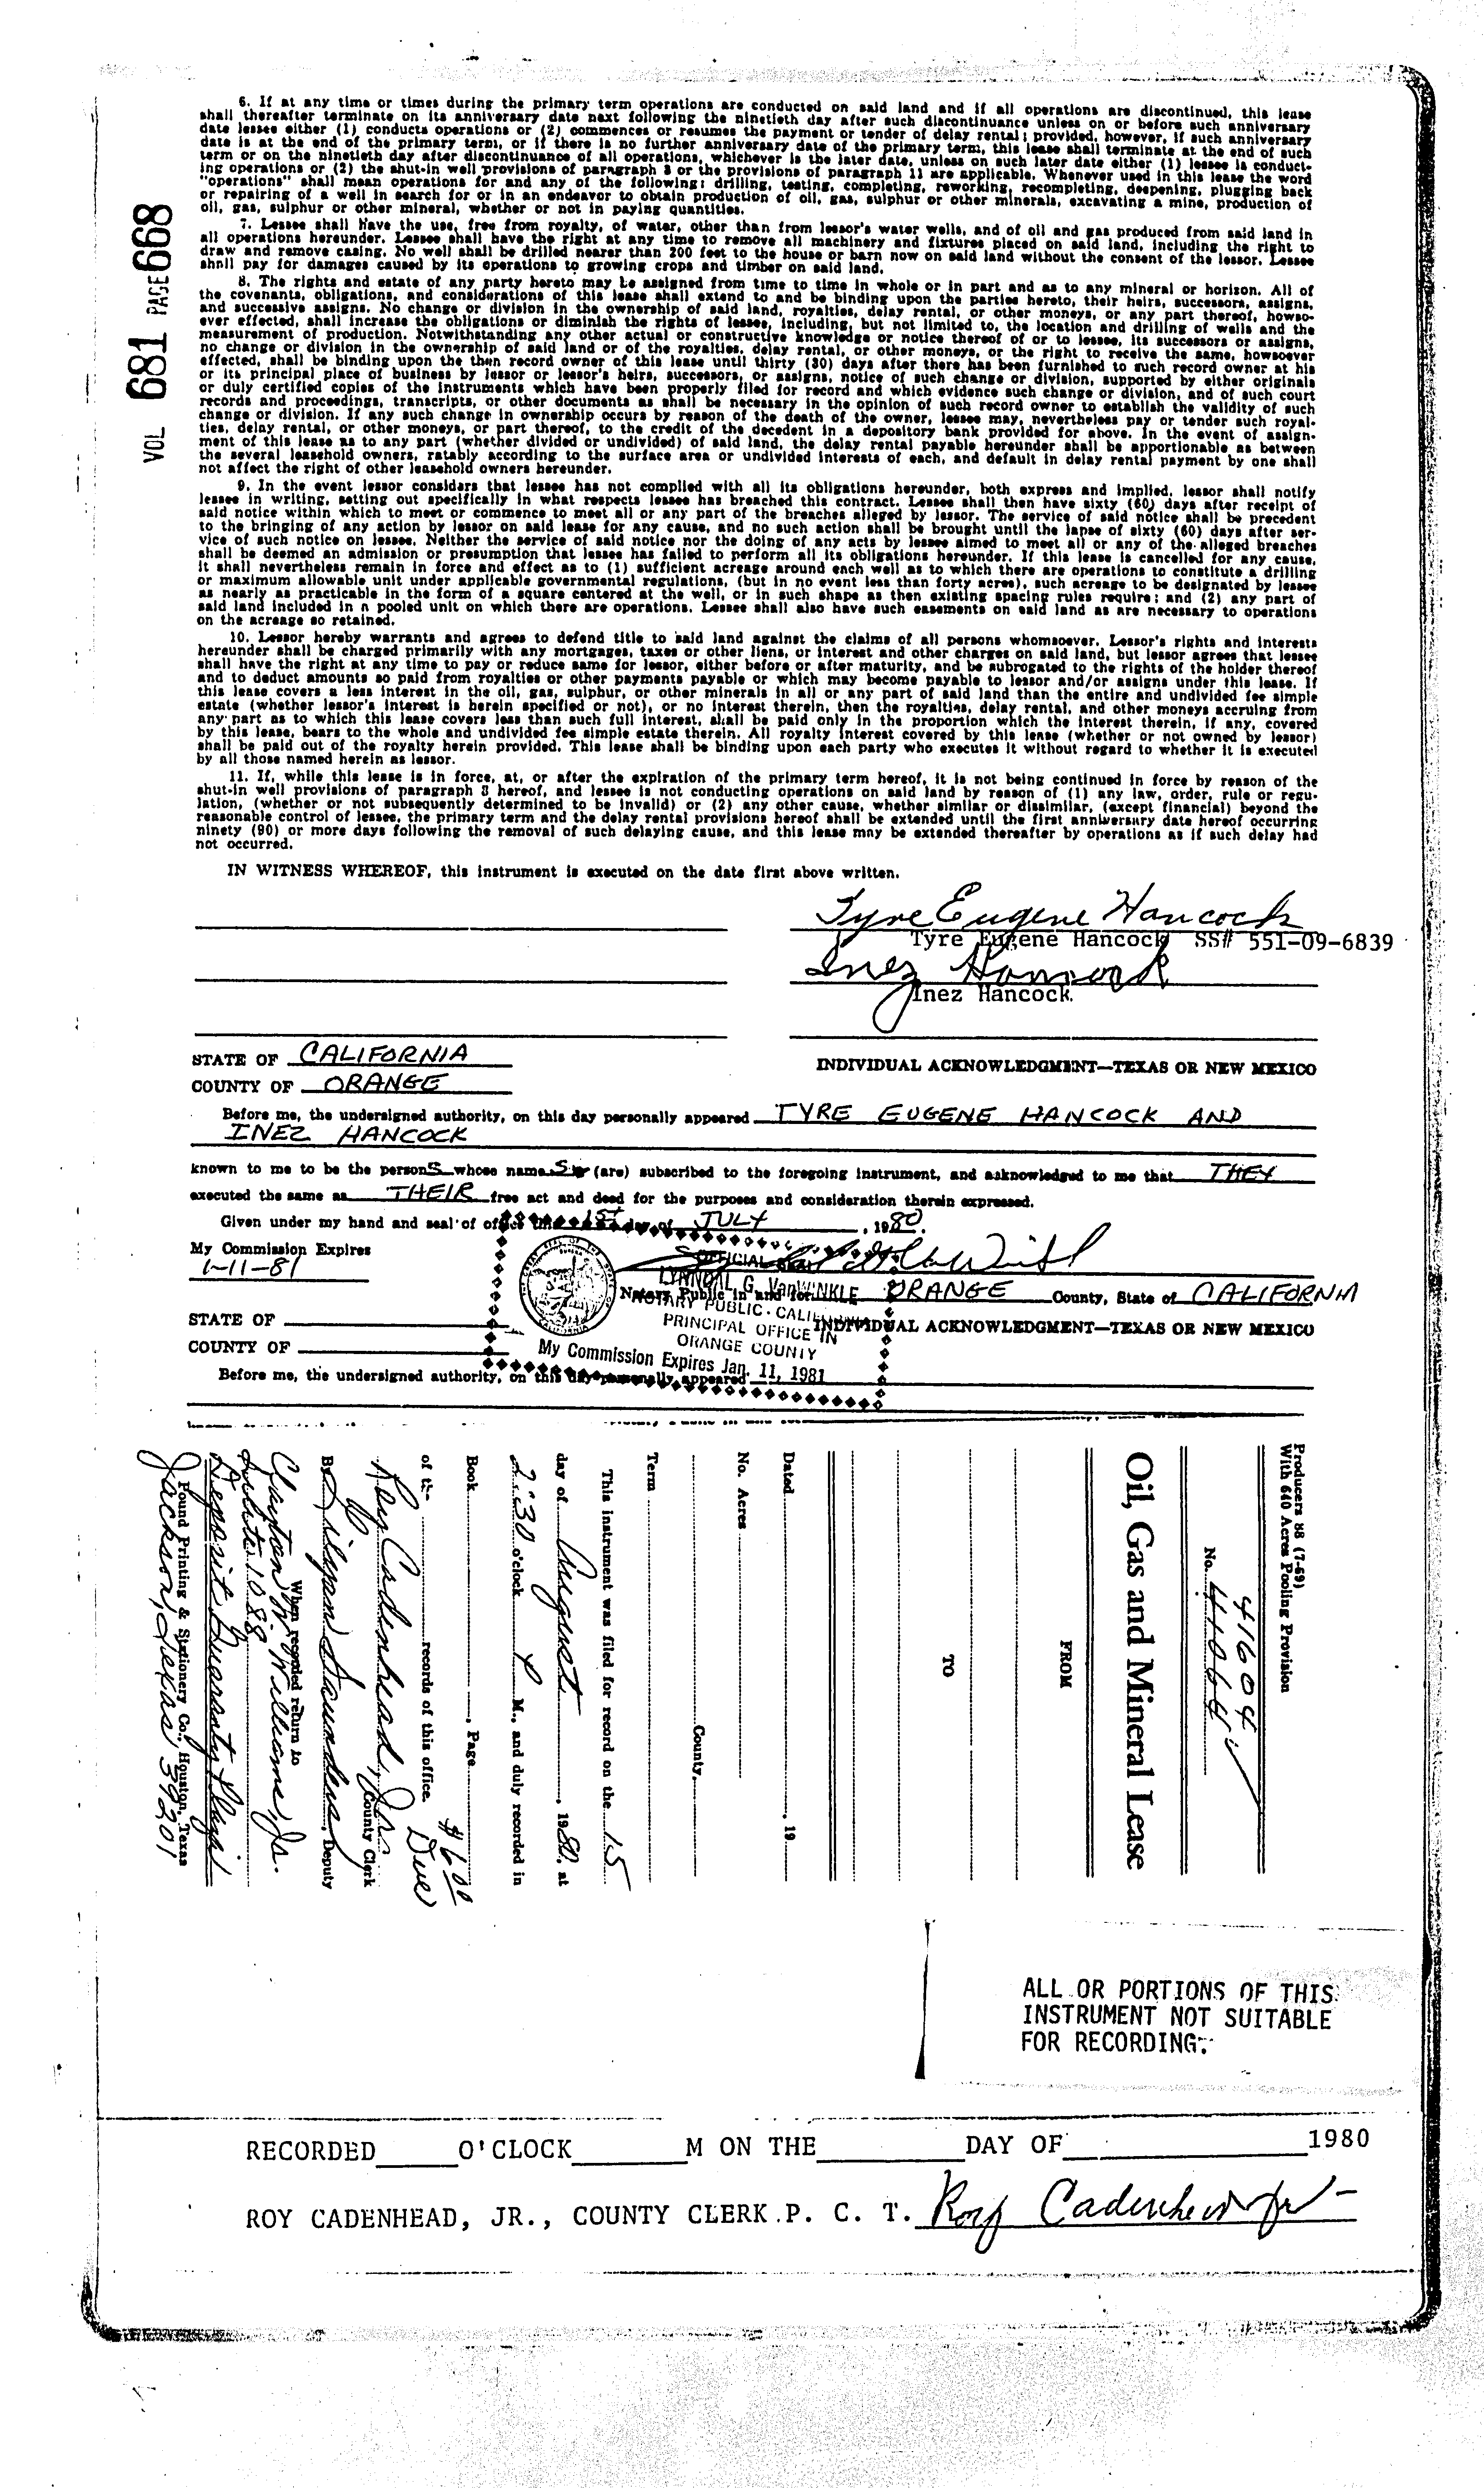 VOL 681 PAGE 668
6. If at any time or times during the primary term operations are conducted on said land and if all operations are discontinued, this lease
shall thereafter terminate on its anniversary date next following the ninetieth day after such discontinuance unless on or before such anniversary
date lessee either (1) conducts operations or (2) commences or resumes the payment or tender of delay rental; provided, however, if such anniversary
date is at the end of the primary term, or if there is no further anniversary date of the primary term, this lease shall terminate at the end of such
term or on the ninetieth day after discontinuance of all operations, whichever is the later date, unless on such later date either (1) lessee is conduct-
ing operations or (2) the shut-in well provisions of paragraph 3 or the provisions of paragraph 11 are applicable. Whenever used in this lease the word
"operations" shall mean operations for and any of the following: drilling, testing, completing, reworking, recompleting, deepening, plugging back
or repairing of a well in search for or in an endeavor to obtain production of oil, gas, sulphur or other minerals, excavating a mine, production of
oil, gas, sulphur or other mineral, whether or not in paying quantities.
7. Lessee shall have the use, free from royalty, of water, other than from lessor's water wells, and of oil and gas produced from said land in
all operations hereunder. Lessee shall have the right at any time to remove all machinery and fixtures placed on said land, including the right to
draw and remove casing. No well shall be drilled nearer than 200 feet to the house or barn now on said land without the consent of the lessor. Lessee
shall pay for damages caused by its operations to growing crops and timber on said land.
8. The rights and estate of any party hereto may be assigned from time to time in whole or in part and as to any mineral or horizon. All of
the covenants, obligations, and considerations of this lease shall extend to and be binding upon the parties hereto, their heirs, successors, assigns,
and successive assigns. No change or division in the ownership of said land, royalties, delay rental, or other moneys, or any part thereof, howso-
ever effected, shall increase the obligations or diminish the rights of lessee, including, but not limited to, the location and drilling of wells and the
measurement of production. Notwithstanding any other actual or constructive knowledge or notice thereof of or to lessee, its successors or assigns,
no change or division in the ownership of said land or of the royalties, delay rental, or other moneys, or the right to receive the same, howsoever
effected, shall be binding upon the then record owner of this lease until thirty (30) days after there has been furnished to such record owner at his
or its principal place of business by lessor or lessor's heirs, successors, or assigns, notice of such change or division, supported by either originals
or duly certified copies of the instruments which have been properly filed for record and which evidence such change or division, and of such court
records and proceedings, transcripts, or other documents as shall be necessary in the opinion of such record owner to establish the validity of such
change or division. If any such change in ownership occurs by reason of the death of the owner, lessee may, nevertheless pay or tender such royal-
ties, delay rental, or other moneys, or part thereof, to the credit of the decedent in a depository bank provided for above. In the event of assign-
ment of this lease as to any part (whether divided or undivided) of said land, the delay rental payable hereunder shall be apportionable as between
the several leasehold owners, ratably according to the surface area or undivided interests of each, and default in delay rental payment by one shall
not affect the right of other leasehold owners hereunder.
9. In the event lessor considers that lessee has not complied with all its obligations hereunder, both express and implied, lessor shall notify
lessee in writing, setting out specifically in what respects lessee has breached this contract. Lessee shall then have sixty (60) days after receipt of
said notice within which to meet or commence to meet all or any part of the breaches alleged by lessor. The service of said notice shall be precedent
to the bringing of any action by lessor on said lease for any cause, and no such action shall be brought until the lapse of sixty (60) days after ser-
vice of such notice on lessee. Neither the service of said notice nor the doing of any acts by lessee aimed to meet all or any of the alleged breaches
shall be deemed an admission or presumption that lessee has failed to perform all its obligations hereunder. If this lease is cancelled for any cause,
it shall nevertheless remain in force and effect as to (1) sufficient acreage around each well as to which there are operations to constitute a drilling
or maximum allowable unit under applicable governmental regulations, (but in no event less than forty acres), such acreage to be designated by lessee
as nearly as practicable in the form of a square centered at the well, or in such shape as then existing spacing rules require; and (2) any part of
said land included in a pooled unit on which there are operations. Lessee shall also have such easements on said land as are necessary to operations
on the acreage so retained.
10. Lessor hereby warrants and agrees to defend title to said land against the claims of all persons whomsoever. Lessor's rights and interests
hereunder shall be charged primarily with any mortgages, taxes or other liens, or interest and other charges on said land, but lessor agrees that lessee
shall have the right at any time to pay or reduce same for lessor, either before or after maturity, and be subrogated to the rights of the holder thereof
and to deduct amounts so paid from royalties or other payments payable or which may become payable to lessor and/or assigns under this lease. If
this lease covers a less interest in the oil, gas, sulphur, or other minerals in all or any part of said land than the entire and undivided fee simple
estate (whether lessor's interest is herein specified or not), or no interest therein, then the royalties, delay rental, and other moneys accruing from
any part as to which this lease covers less than such full interest, shall be paid only in the proportion which the interest therein, if any, covered
by this lease, bears to the whole and undivided fee simple estate therein. All royalty interest covered by this lease (whether or not owned by lessor)
shall be paid out of the royalty herein provided. This lease shall be binding upon each party who executes it without regard to whether it is executed
by all those named herein as lessor.
11. If, while this lease is in force, at, or after the expiration of the primary term hereof, it is not being continued in force by reason of the
shut-in well provisions of paragraph 3 hereof, and lessee is not conducting operations on said land by reason of (1) any law, order, rule or regu-
lation, (whether or not subsequently determined to be invalid) or (2) any other cause, whether similar or dissimilar, (except financial) beyond the
reasonable control of lessee, the primary term and the delay rental provisions hereof shall be extended until the first anniversary date hereof occurring
ninety (90) or more days following the removal of such delaying cause, and this lease may be extended thereafter by operations as if such delay had
not occurred.
IN WITNESS WHEREOF, this instrument is executed on the date first above written.
Tyre Eugene Hancock
Tyre Eugene Hancock SS# 551-09-6839
Inez Hancock
Inez Hancock
STATE OF CALIFORNIA
INDIVIDUAL ACKNOWLEDGMENT—TEXAS OR NEW MEXICO
COUNTY OF ORANGE
Before me, the undersigned authority, on this day personally appeared TYRE EUGENE HANCOCK AND
INEZ HANCOCK
known to me to be the persons whose names (are) subscribed to the foregoing instrument, and acknowledged to me that THEY
executed the same as THEIR free act and deed for the purposes and consideration therein expressed.
Given under my hand and seal of office this 1st day of JULY, 1980.
My Commission Expires
1-11-81
OFFICIAL SEAL
LYNNDAL G. VanWINKLE
NOTARY PUBLIC - CALIFORNIA
PRINCIPAL OFFICE IN
ORANGE COUNTY
My Commission Expires Jan. 11, 1981
Notary Public in and for ORANGE County, State of CALIFORNIA
STATE OF
INDIVIDUAL ACKNOWLEDGMENT—TEXAS OR NEW MEXICO
COUNTY OF
Before me, the undersigned authority, on this day personally appeared
Producers 88 (7-69)
With 640 Acres Pooling Provision
41604
No.
Oil, Gas and Mineral Lease
FROM
TO
Dated , 19
No. Acres
County,
Term
This instrument was filed for record on the 15
day of August, 1980, at
2:30 o'clock P M., and duly recorded in
Book , Page
$6.00
of the records of this office. Due
Roy Cadenhead, Jr.
County Clerk
By Lilyan Saunders, Deputy
When recorded return to
Clayton W. Williams, Jr.
Suite 1088
Deposit Guaranty Plaza
Pound Printing & Stationery Co., Houston, Texas
Jackson, Texas 39201
ALL OR PORTIONS OF THIS
INSTRUMENT NOT SUITABLE
FOR RECORDING.
RECORDED O'CLOCK M ON THE DAY OF 1980
ROY CADENHEAD, JR., COUNTY CLERK P. C. T. Roy Cadenhead Jr